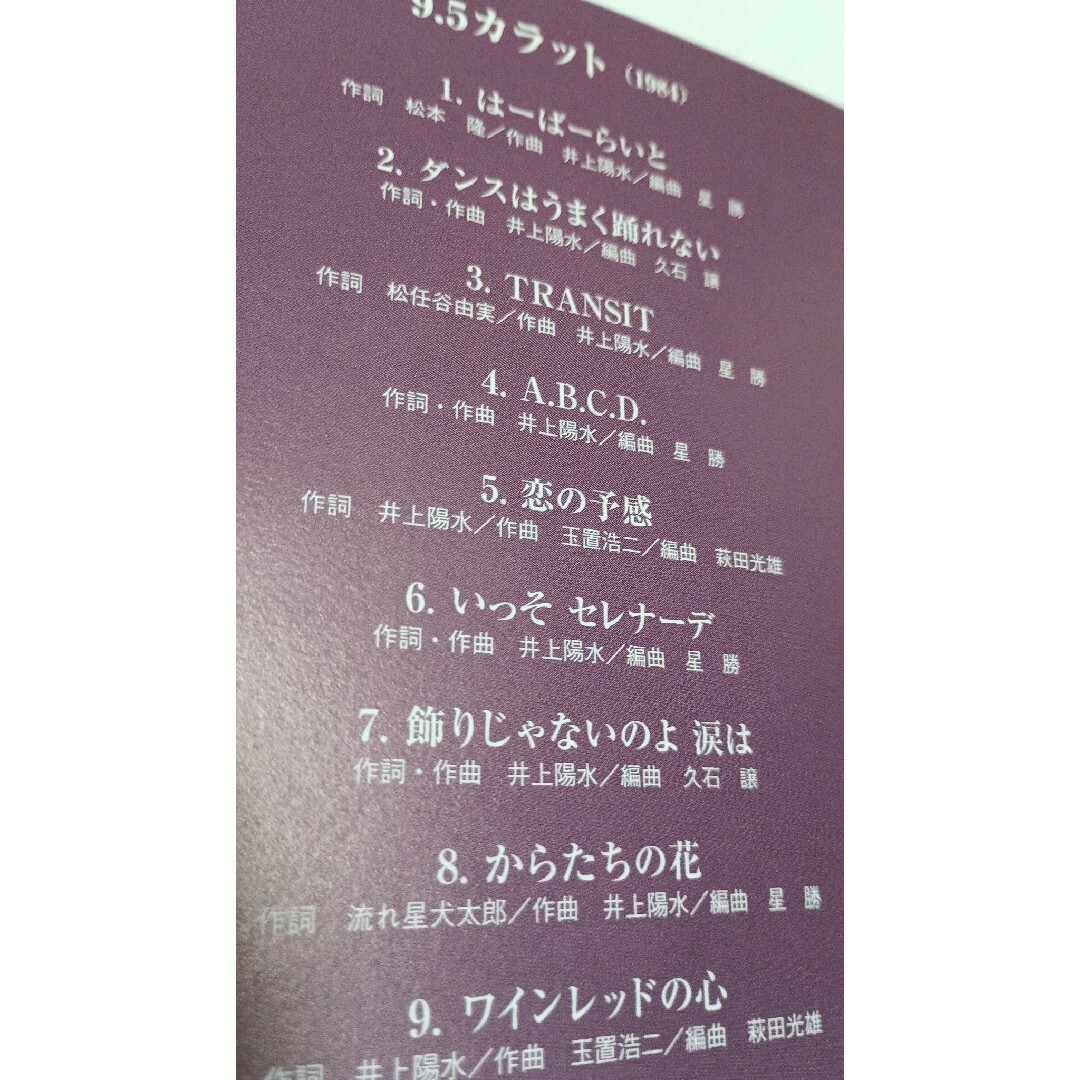 9.5カラット（1984）
1. はーばーらいと
作詞　松本　隆／作曲　井上陽水／編曲　星　勝
2. ダンスはうまく踊れない
作詞・作曲　井上陽水／編曲　久石　譲
3. TRANSIT
作詞　松任谷由実／作曲　井上陽水／編曲　星　勝
4. A.B.C.D.
作詞・作曲　井上陽水／編曲　星　勝
5. 恋の予感
作詞　井上陽水／作曲　玉置浩二／編曲　萩田光雄
6. いっそ セレナーデ
作詞・作曲　井上陽水／編曲　星　勝
7. 飾りじゃないのよ 涙は
作詞・作曲　井上陽水／編曲　久石　譲
8. からたちの花
作詞　流れ星犬太郎／作曲　井上陽水／編曲　星　勝
9. ワインレッドの心
作詞　井上陽水／作曲　玉置浩二／編曲　萩田光雄